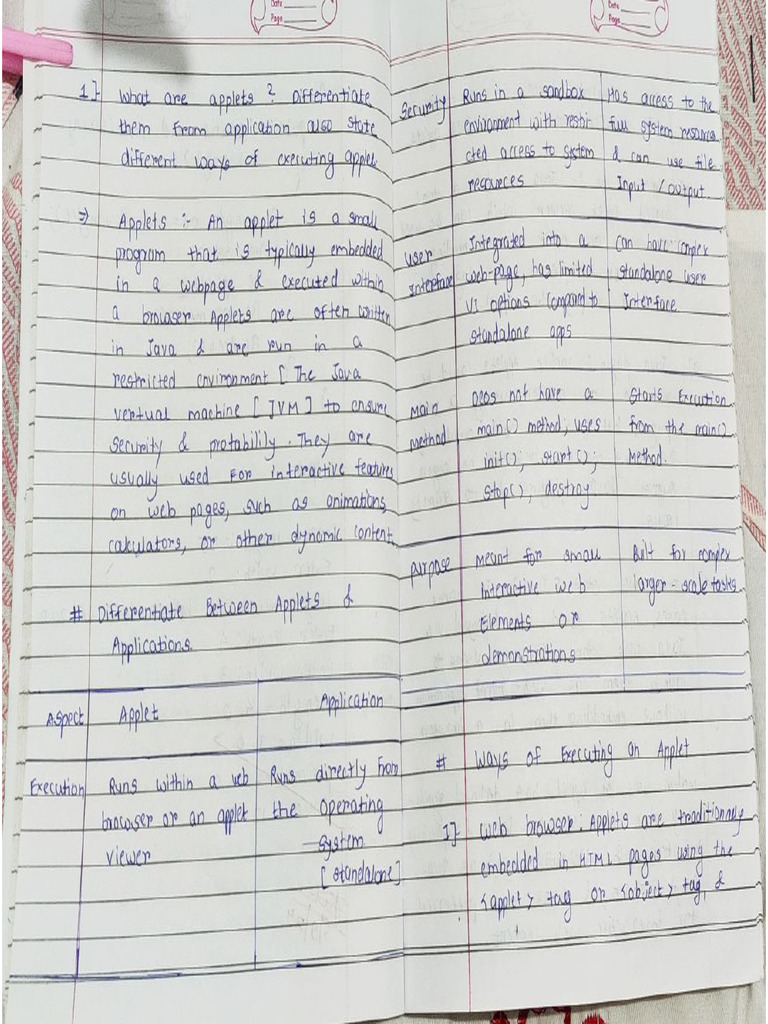 Date
Page
Date
Page
1] What are applets ? Differentiate
them from application also state
different ways of executing applet
⇒ Applets :- An applet is a small
program that is typically embedded
in a webpage & executed within
a browser Applets are often written
in Java & are run in a
restricted environment [ The Java
vertual machine [ JVM ] to ensure
security & protability. They are
usually used for interactive features
on web pages, such as animations
calculators, or other dynamic content
# Differentiate Between Applets &
Applications.
Aspect Applet Application
Execution Runs within a web Runs directly from
browser or an applet the operating
viewer system
[ standalone ]
Security Runs in a sandbox Has access to the
environment with restri full system resource
cted access to system & can use file
resources Input / output.
User Integrated into a can have complex
interface web-page, has limited standalone user
UI options compared to Interface.
standalone apps
Main Does not have a Starts Execution
method main() method, uses from the main()
init(); start(); Method.
stop(); destroy
purpose Meant for small Built for complex
Interactive web larger - scale tasks
Elements or
demonstrations
# Ways of Executing an Applet
1] Web browser : Applets are traditionally
embedded in HTML pages using the
{applet> tag or {object> tag, &